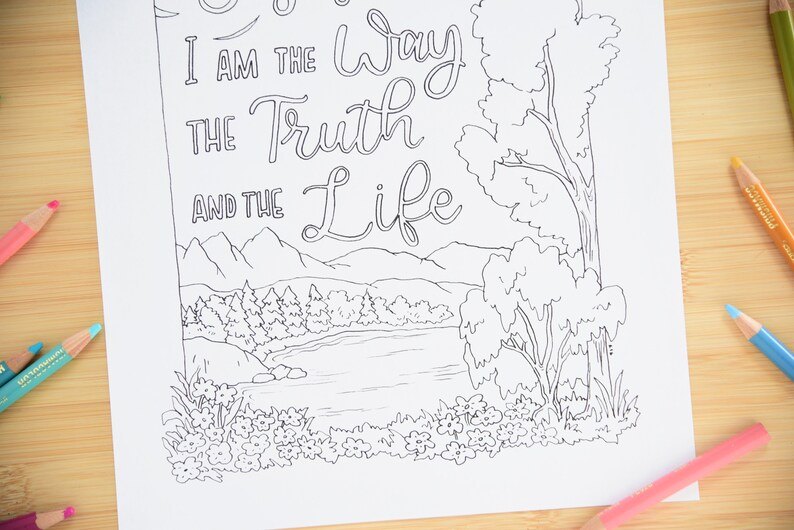 I AM THE Way
THE Truth
AND THE Life
PRISMACOLOR